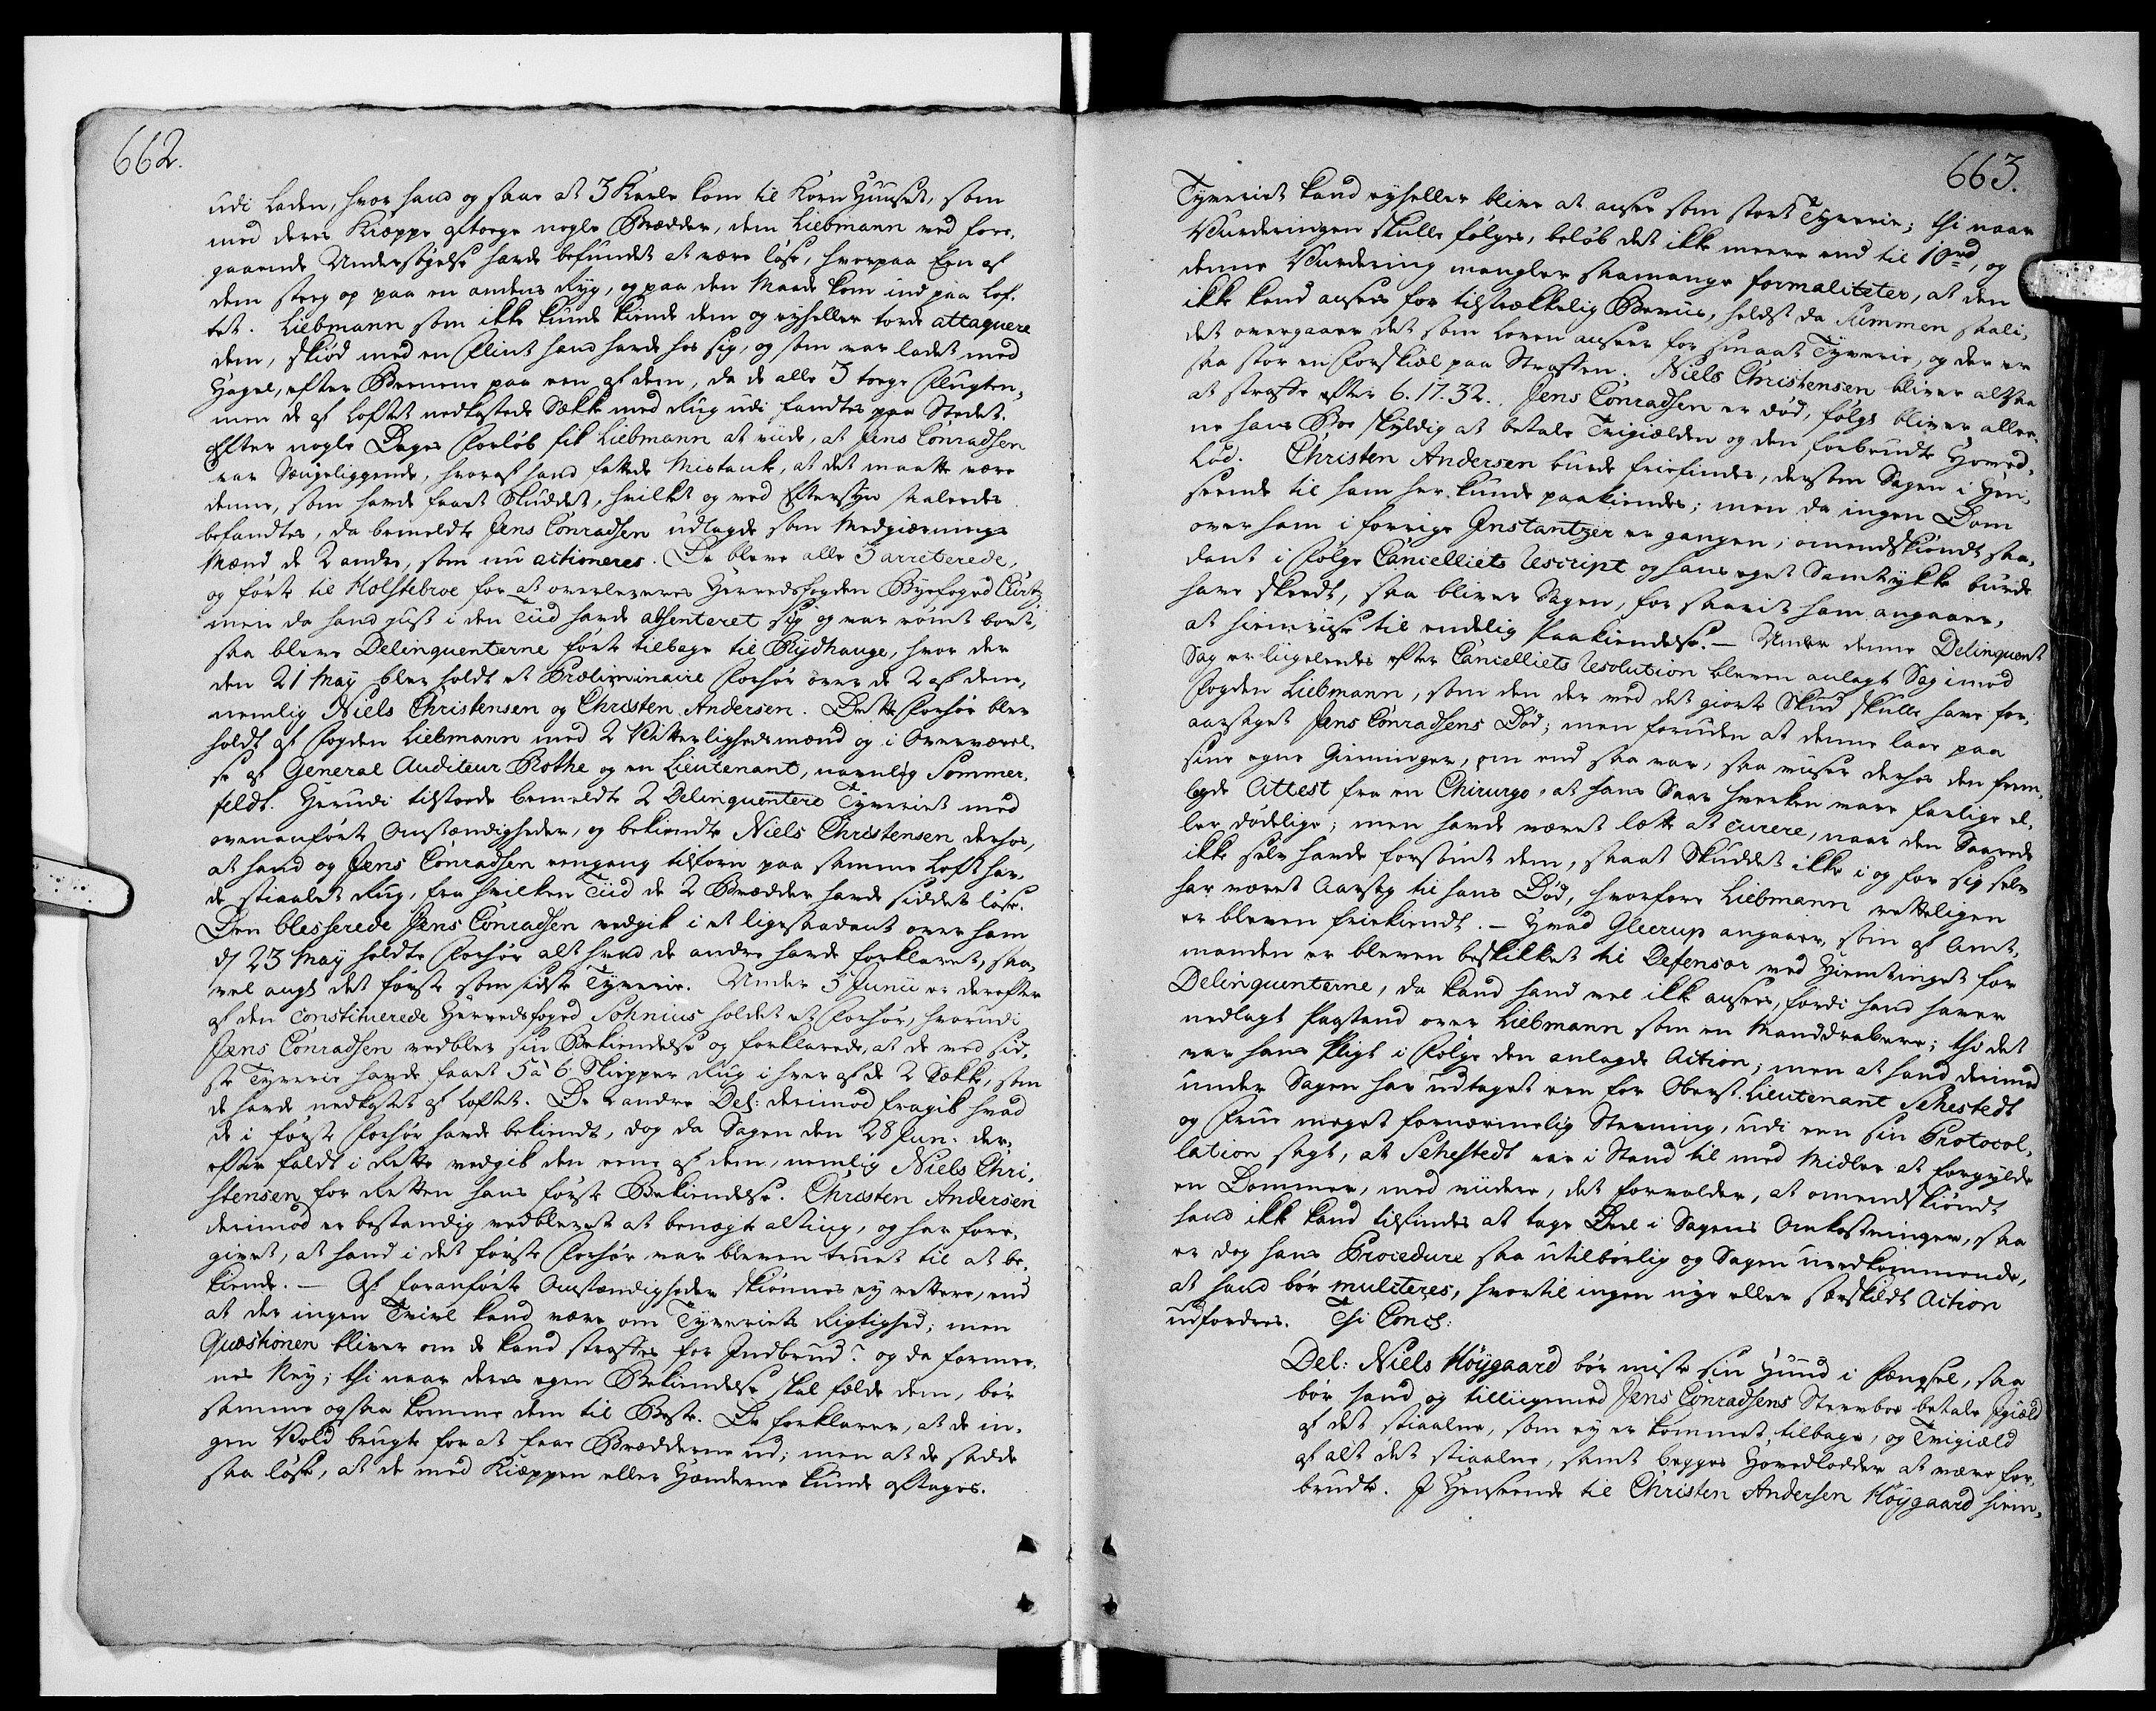 662.
udi Laden, hvor hand og saae at 3 Karle kom til Korn Huuset, som
med deres Kieppe aftoege nogle Brædder, dem Liebmann ved fore-
gaaende Undersøgelse havde befundet at være løse, hvorpaa Een af
dem steeg op paa en andens Ryg, og paa den Maade kom ind paa Lof-
tet. Liebmann som ikke kunde kiende dem og eyheller torde attaquere
dem, skiød med en Flint hand havde hos sig, og som var ladet med
Hagel, efter Beenene paa een af dem, da de alle 3 toege Flugten,
men de af Loftet nedkastede Sække med Rug udi fandtes paa Stedet.
Efter nogle Dages Forløb fik Liebmann at viide, at Jens Conradsen
var Sengeliggende, hvoraf hand fattede Mistanke, at det maatte være
denne, som havde faaet Skuddet, hvilket og ved Eftersyn saaledes
befandtes, da bemeldte Jens Conradsen udlagde som Medgiernings
Mænd de 2 andre, som nu actioneres. De bleve alle 3 arreterede,
og førte til Holstebroe for at overleveres Herredsfogden Byefoged Curtz
men da hand just i den Tiid havde absenteret sig og var rømt bort,
saa bleve Delinquenterne førte tilbage til Rydhauge, hvor der
den 21 May blev holdt et Præliminaire Forhør over de 2 af dem,
nemlig Niels Christensen og Christen Andersen. Dette Forhør blev
holdt af Fogden Liebmann med 2 Vitterlighedsmænd og i Overværel-
se af General Auditeur Rothe og en Lieutenant, navnlig Sommer-
feldt. Herudi tilstoede bemeldte 2 Delinquentere Tyveriet med
ovenanførte Omstændigheder, og bekiendte Niels Christensen derhos,
at hand og Jens Conradsen eengang tilforn paa samme Loft hav-
de stiaalet Rug, fra hvilken Tiid de 2 Brædder havde siddet løse.
Den blesserede Jens Conradsen vedgik i et ligesaadant over ham
d. 23 May holdte Forhør alt hvad de andre havde forklaret, saa-
vel angl. det første som sidste Tyverie. Under 5 Junii er derefter
af den Constituerede Herredsfoged Sohnius holdet et Forhør, hvorudi
Jens Conradsen vedblev sin Bekiendelse og forklarede, at de ved sid-
ste Tyverie havde faaet 5 à 6 Skiepper Rug i hver af de 2 Sække, som
de havde nedkastet af Loftet. De 2 andre Del: derimod fragik hvad
de i første Forhør havde bekiendt, dog da Sagen den 28 Jun. der-
efter faldt i Rette vedgik den eene af dem, nemlig Niels Chri-
stensen for Retten hans første Bekiendelse. Christen Andersen
derimod er bestandig vedblevet at benægte alting, og har fore-
givet, at hand i det første Forhør var bleven truet til at be-
kiende. – Af foranførte Omstændigheder skiønnes ey rettere, end
at der ingen Tvivl kand være om Tyveriets Rigtighed; men
Quæstionen bliver om de kand straffes for Indbrud? og da formee-
nes Ney; thi naar deres egen Bekiendelse skal fælde dem, bør
samme ogsaa komme dem til Beste. De forklarer, at de in-
gen Vold brugte for at faae Brædderne ud; men at de sadde
saa løse, at de med Kieppen eller Hænderne kunde aftages.
663.
Tyveriet kand eyheller blive at ansee som stort Tyverie; thi naar
Vurderingen skulle følges, beløb det ikke meere end til 10 rd, og
denne Vurdering mangler saamange formaliteter, at den
ikke kand ansees for tilstrækkelig Beviis, heldst da Summen saali-
det overgaaer det som Loven anseer for smaat Tyverie, og der er
saa stor en Forskiel paa Straffen. Niels Christensen bliver altsaa
at straffe efter 6.17.32. Jens Conradsen er død, følgl. bliver alle-
ne hans Boe skyldig at betale Tvigielden og den forbrudte Hoved-
lod. Christen Andersen burde friefindes, dersom Sagen i Hen-
seende til ham her kunde paakiendes; men da ingen Dom
over ham i forrige Instantzer er gangen, omendskiøndt saa-
dant i Følge Cancelliets Rescript og hans eget Samtykke burde
have skeedt, saa bliver Sagen, for saavit ham angaaer,
at hiemviise til endelig Paakiendelse. – Under denne Delinquent
Sag er ligeledes efter Cancelliets Resolution bleven anlagt Sag imod
Fogden Liebmann, som den der ved det giorte Skud skulle have for-
aarsaget Jens Conradsens Død; men foruden at denne laae paa
sine egne Gierninger, om end saa var, saa viiser derhos den frem-
lagde Attest fra en Chirurgo, at hans Saar hverken vare farlige el-
ler dødelige; men havde været lætte at curere, naar den Saarede
ikke selv havde forsømt dem, saaat Skuddet ikke i og for sig selv
har været Aarsag til hans Død, hvorfore Liebmann retteligen
er bleven friekiendt. – Hvad Gleerup angaaer, som af Amt-
manden er bleven beskikket til Defensor ved Hiemtinget for
Delinquenterne, da kand hand vel ikke ansees, fordi hand haver
nedlagt Paastand over Liebmann som en Manddrabere; thi det
var hans Pligt i Følge den anlagde Action; men at hand derimod
under Sagen har udtaget een for Oberst-Lieutenant Sehestedt
og Frue meget fornærmelig Stevning, udi een sin Protocol-
lation sagt, at Sehestedt var i Stand til med Midler at forgylde
en Dommer, med viidere, det forvolder, at omendskiøndt
hand ikke kand tilfindes at tage Deel i Sagens Omkostninger, saa
er dog hans Procedure saa utilbørlig og Sagen uvedkommende,
at hand bør mulcteres, hvortil ingen nye eller særskildt Action
udfordres. Thi Concl:
Del: Niels Høygaard bør miste sin Huud i Fængsel, saa
bør hand og tilligemed Jens Conradsens Stervboe betale Igield
af det stiaalne, som ey er kommet tilbage, og Tvigield
af alt det stiaalne, samt begges Hovedlodder at være for-
brudt. I Henseende til Christen Andersen Høygaard hiem-